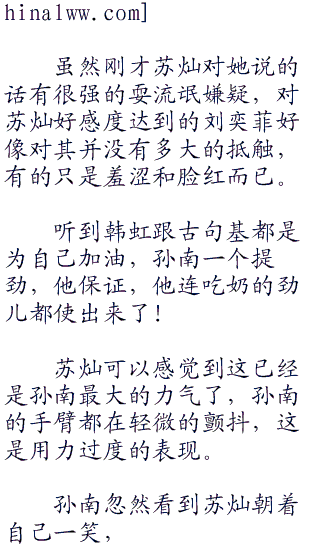 hina1ww.com]
虽然刚才苏灿对她说的
话有很强的耍流氓嫌疑，对
苏灿好感度达到的刘奕菲好
像对其并没有多大的抵触，
有的只是羞涩和脸红而已。
听到韩虹跟古句基都是
为自己加油，孙南一个提
劲，他保证，他连吃奶的劲
儿都使出来了！
苏灿可以感觉到这已经
是孙南最大的力气了，孙南
的手臂都在轻微的颤抖，这
是用力过度的表现。
孙南忽然看到苏灿朝着
自己一笑，